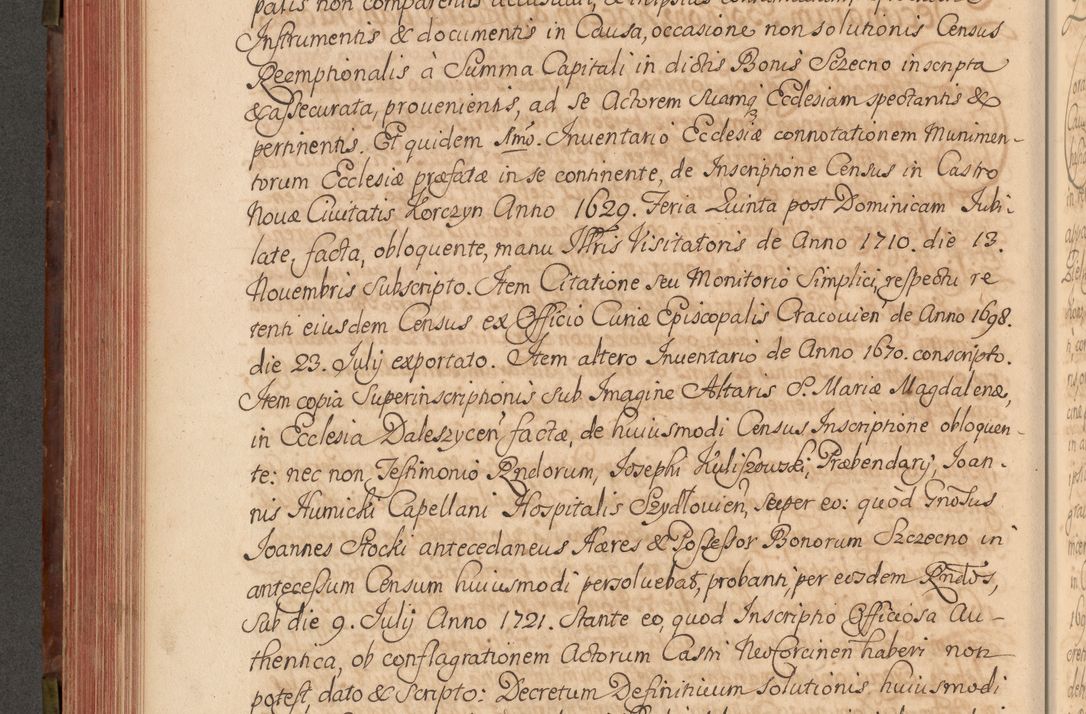 Instrumentis & documentis in Causa, occasione non solutionis Census
Reemptionalis à Summa Capitali in dictis Bonis Sczecno inscripta
& assecurata, provenientis, ad se Actorem suamq Ecclesiam spectantis &
pertinentis. Et quidem 1mo. Inventario Ecclesiæ connotationem Munimen-
torum Ecclesiæ præfatæ in se continente, de Inscriptione Census in Castro
Novæ Civitatis Korczyn Anno 1629. Feria Quinta post Dominicam Jubi-
late, facta, obloquente, manu Illtris Visitatoris de Anno 1710. die 13.
Novembris subscripto. Item Citatione seu Monitorio Simplici, respectu re
tenti eiusdem Census ex Officio Curiæ Episcopalis Cracovien de Anno 1698.
die 23. Julij exportato. Item altero Inventario de Anno 1670. conscripto.
Item copia Superinscriptionis sub Imagine Altaris S. Mariæ Magdalenæ,
in Ecclesia Daleszycen factæ, de huiusmodi Census Inscriptione obloquen-
te: nec non Testimonio Rndorum, Josephi Kuliszowski, Præbendarij, Joan-
nis Humicki Capellani Hospitalis Szydlovien, super eo: quod Gnosus
Joannes Stocki antecedaneus Hæres & Possessor Bonorum Szczecno in
antecessum Censum huiusmodi persoluebat, probanti, per eosdem Rndos,
sub die 9. Julij Anno 1721. Stante eo, quod Inscriptio Officiosa Au-
thentica, ob conflagrationem Actorum Castri Neoforcinen haberi non
potest, dato & scripto: Decretum Definitivum solutionis huiusmodi